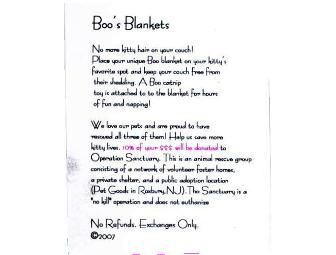 Boo's Blankets
No more kitty hair on your couch!
Place your unique Boo blanket on your kitty's
favorite spot and keep your couch free from
their shedding. A Boo catnip
toy is attached to to the blanket for hours
of fun and napping!
We love our pets and are proud to have
rescued all three of them! Help us save more
kitty lives. 10% of your $$$ will be donated to
Operation Sanctuary. This is an animal rescue group
consisting of a network of volunteer foster homes,
a private shelter, and a public adoption location
(Pet Goods in Roxbury, NJ). The Sanctuary is a
"no kill" operation and does not euthanize
No Refunds. Exchanges Only.
©2007